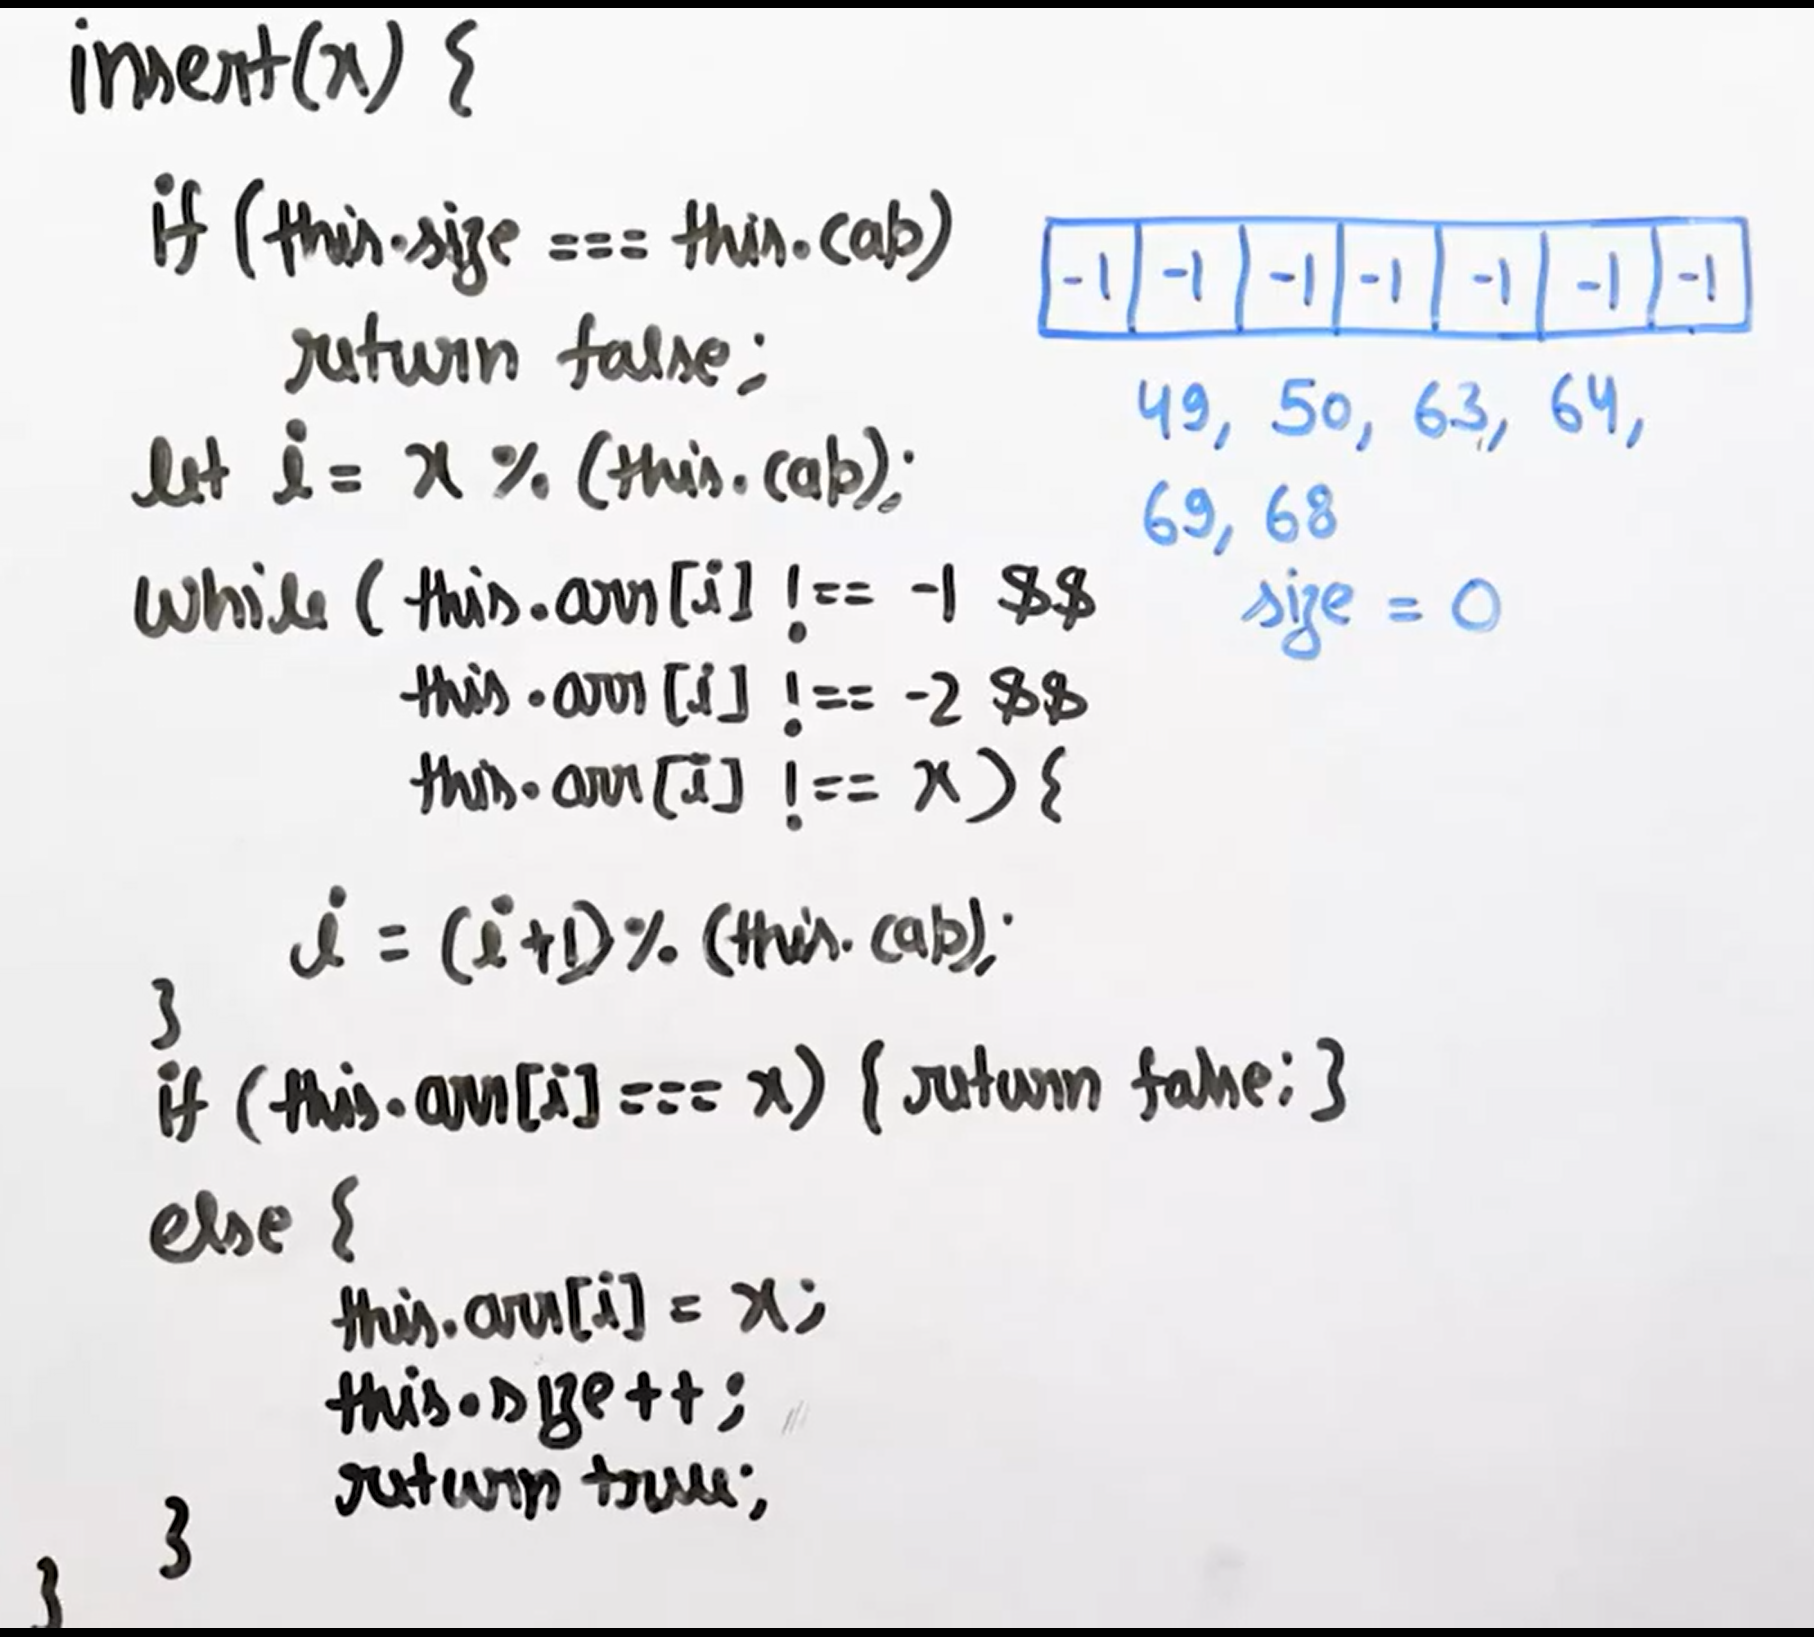 insert(x) {
if (this.size === this.cap)
return false;
let i = x % (this.cap);
while ( this.arr[i] !== -1 &&
this.arr[i] !== -2 &&
this.arr[i] !== x) {
i = (i+1) % (this.cap);
}
if (this.arr[i] === x) { return false; }
else {
this.arr[i] = x;
this.size++;
return true;
}
}
-1 -1 -1 -1 -1 -1 -1
49, 50, 63, 64,
69, 68
size = 0